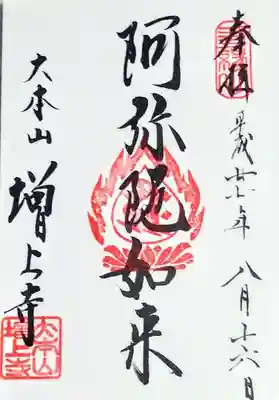 奉拝
平成廿六年
八月十六日
阿弥陀如来
大本山
増上寺